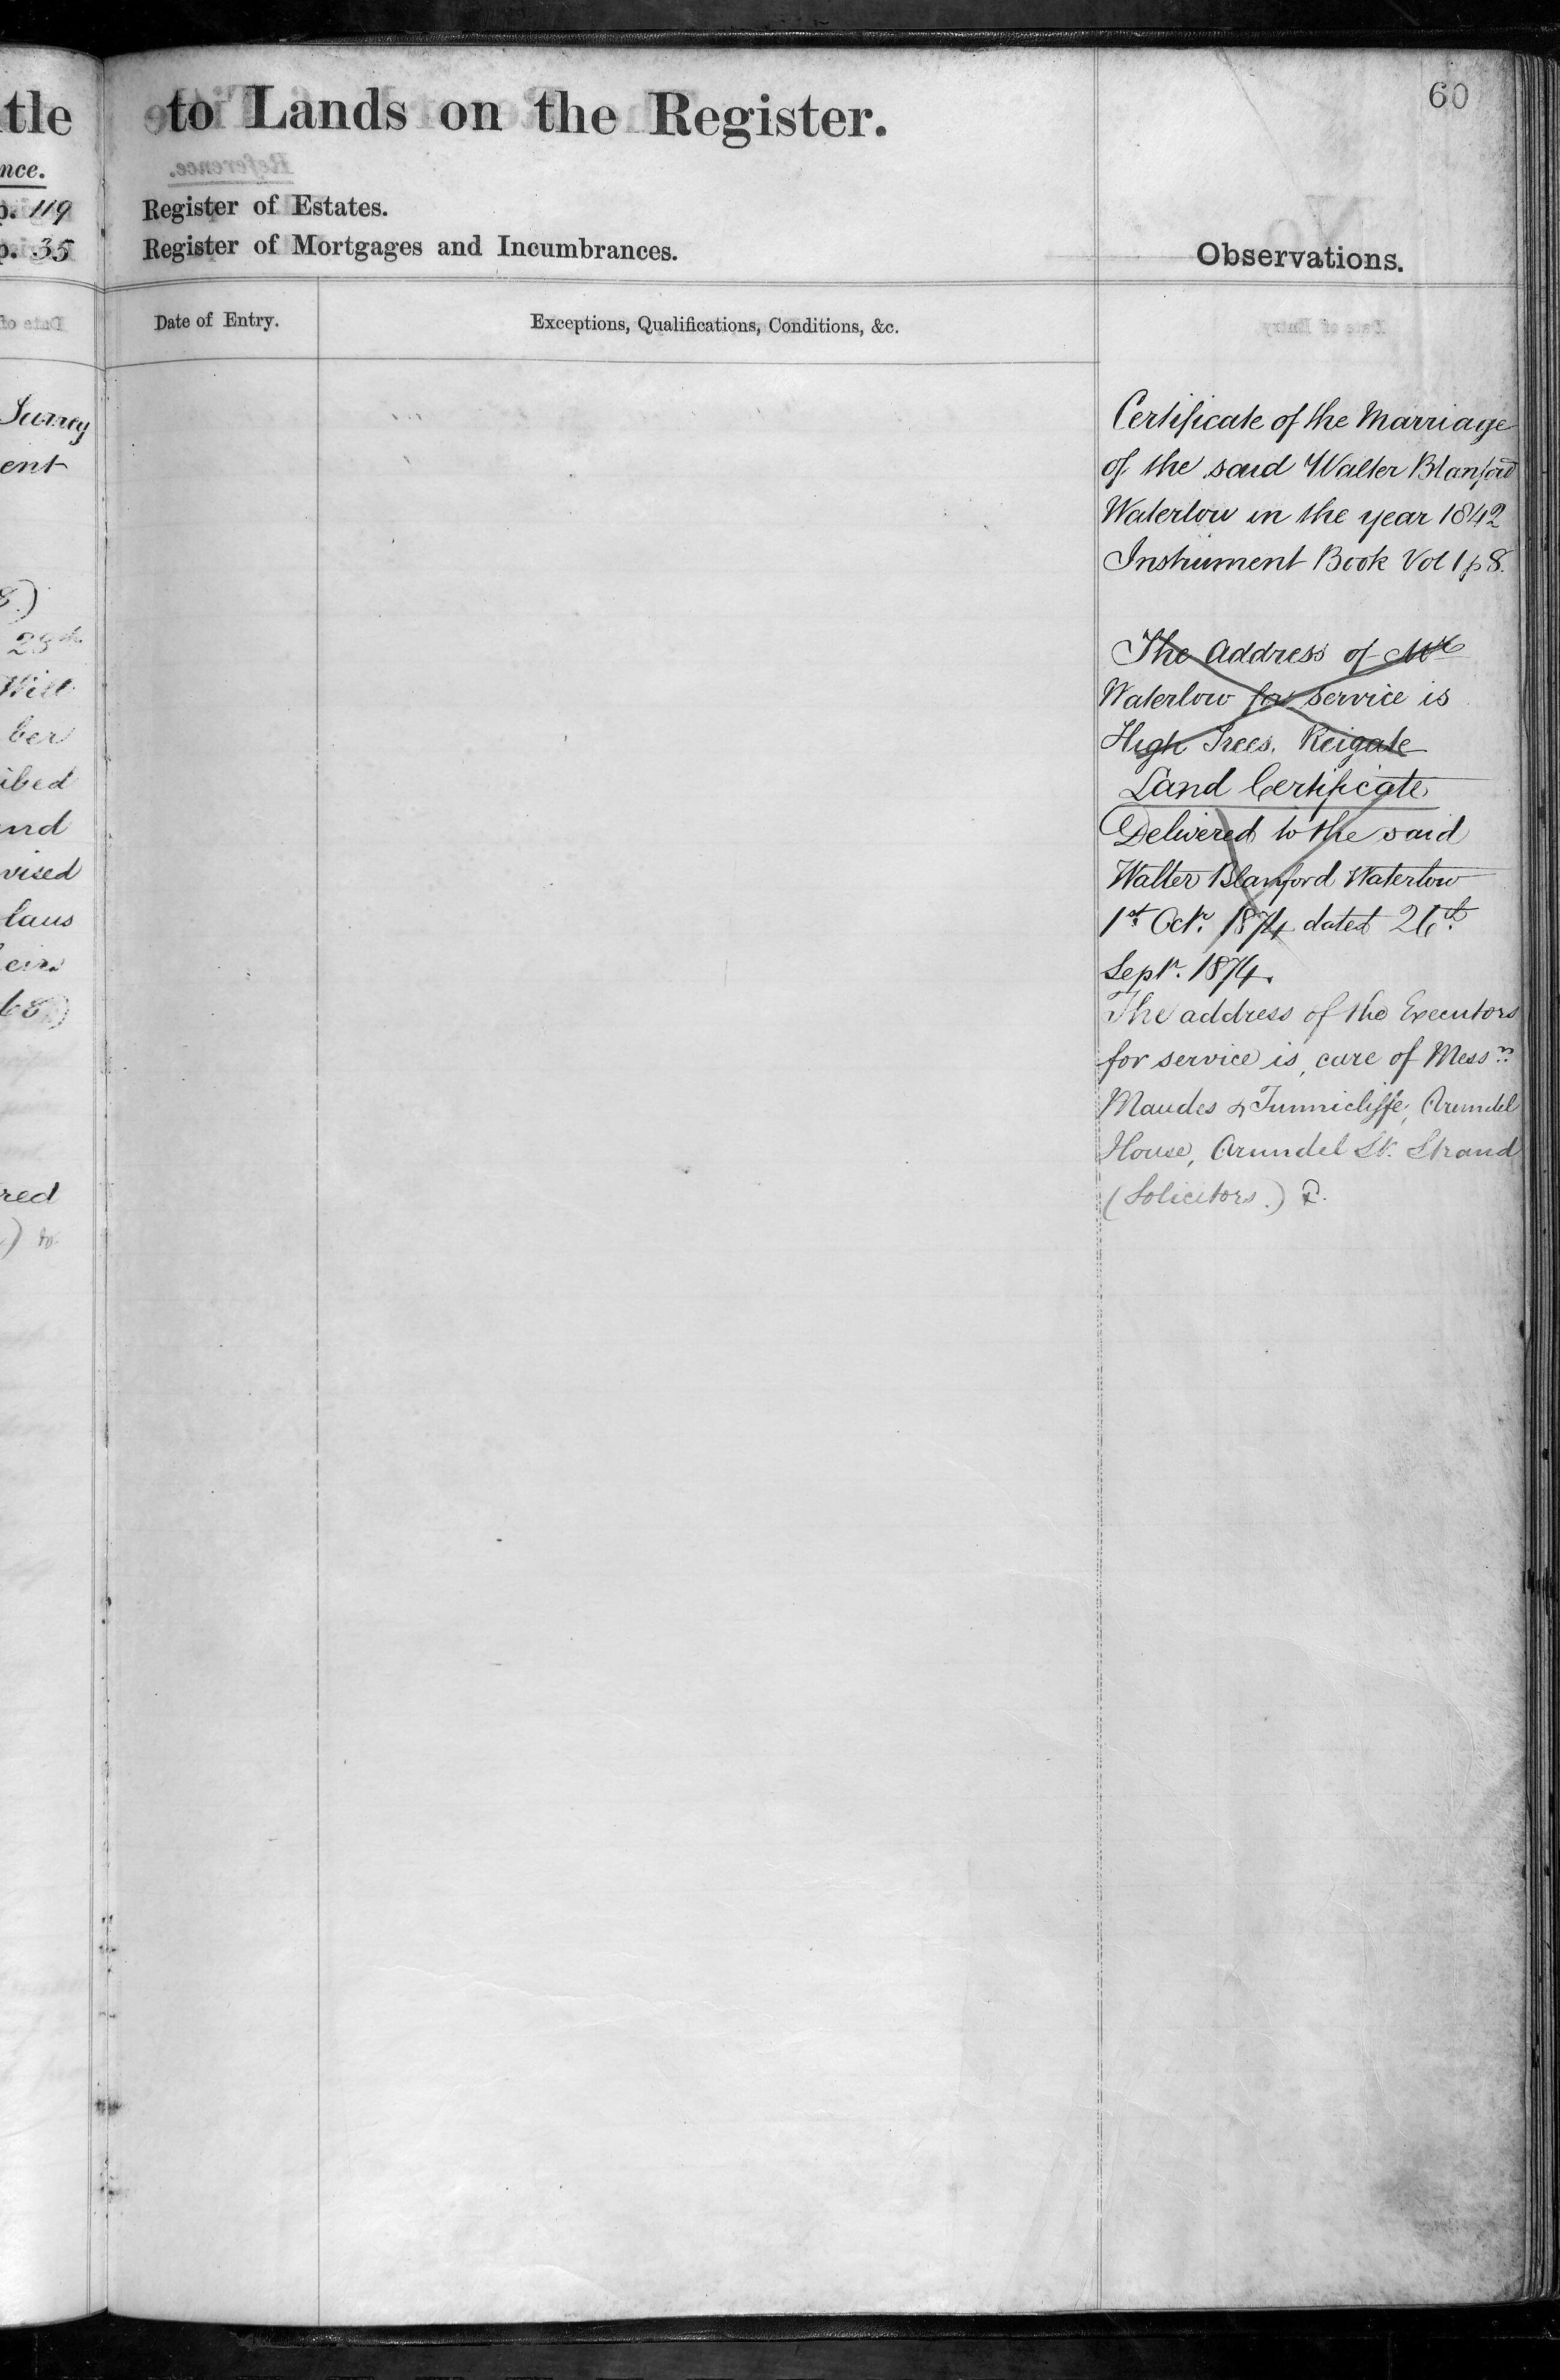 tle
nce.
p. 119
p. 35
Surrey
ent
8.)
23th
Will
ber
ibed
and
vised
laus
eirs
68)
red
to Lands on the Register.
60
Register of Estates.
Register of Mortgages and Incumbrances.
Observations.
Date of Entry.
Exceptions, Qualifications, Conditions, &c.
Certificate of the Marriage
of the said Walter Blanford
Waterlow in the year 1842
Instrument Book Vol 1 p 8.
The Address of Mr
Waterlow for service is
High Trees, Reigate
Land Certificate
Delivered to the said
Walter Blanford Waterlow
1st Octr. 1874 dated 26th.
Septr. 1874.
The address of the Executors
for service is, care of Messrs.
Maudes & Tunnicliffe, Arundel
House, Arundel St. Strand
(Solicitors.)